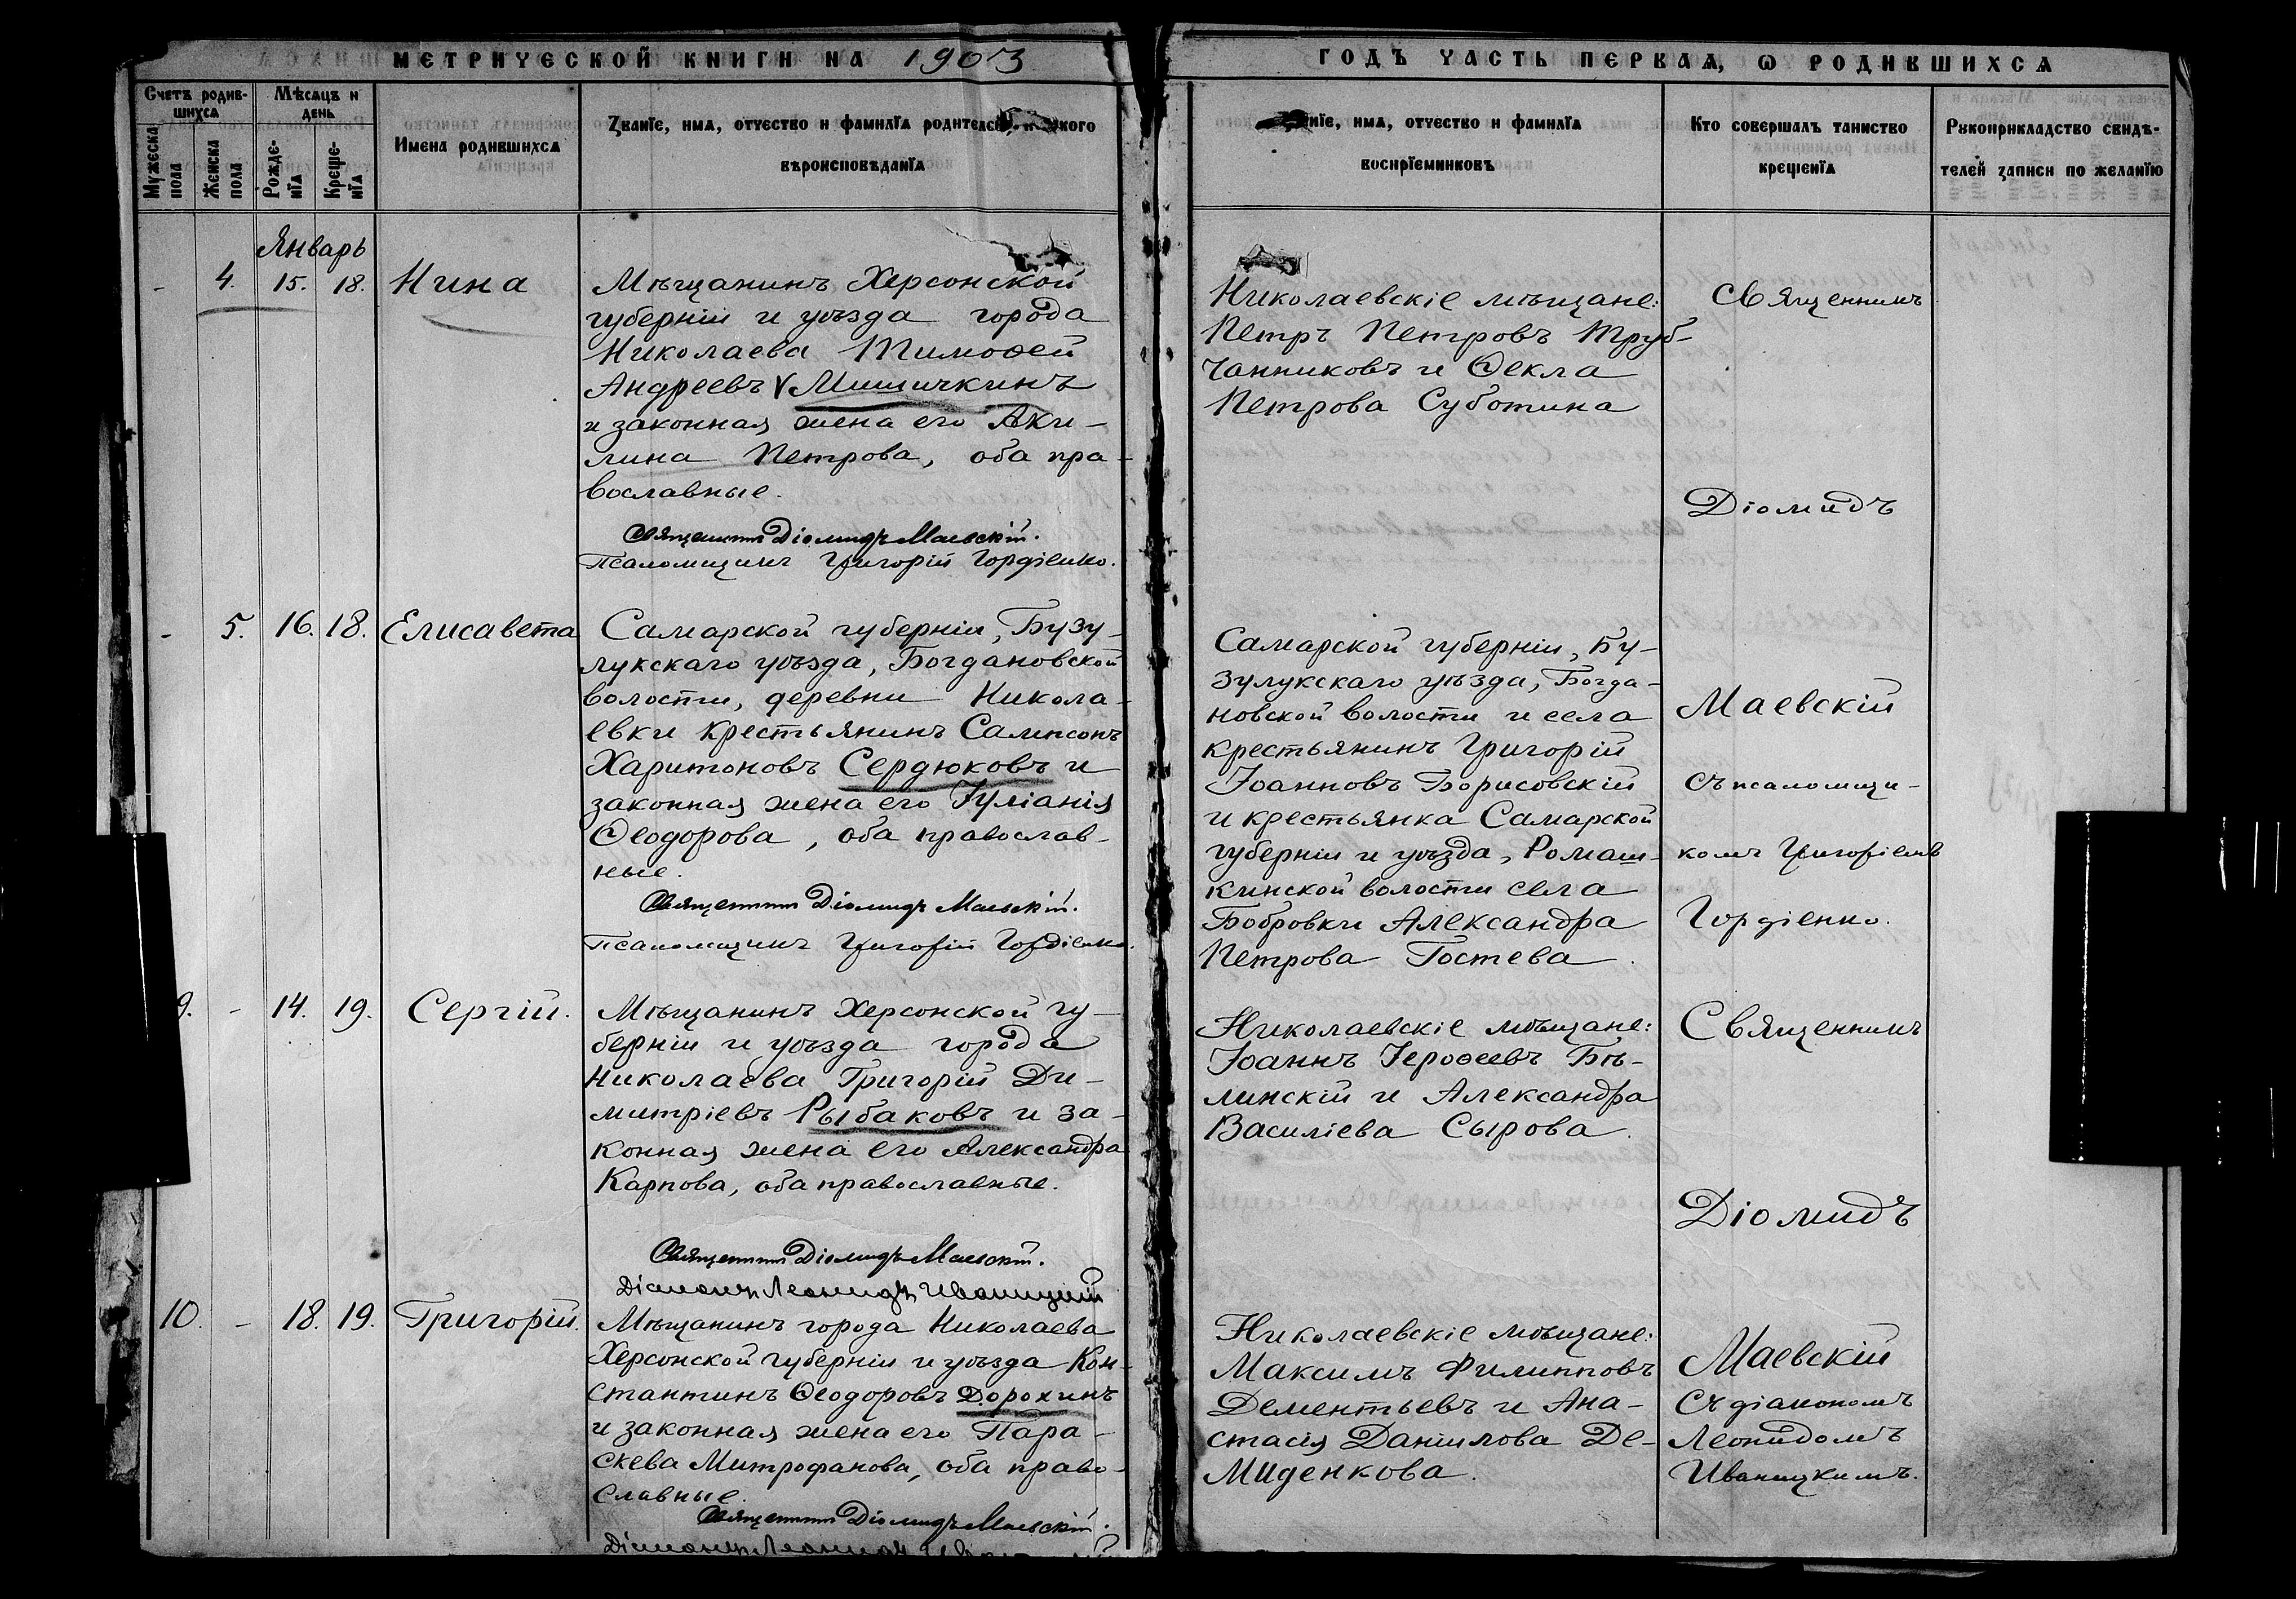 МЕТРИЧЕСКОЙ КНИГИ НА 1903
ГОДЪ ЧАСТЬ ПЕРВАЯ, Ѡ РОДИВШИХСЯ
Счетъ родив-
шихся
Мѣсяцъ и
день
Мужеска
пола
Женска
пола
Рожде-
нїя
Креще-
нїя
Имена родившихся
Званїе, имя, отчество и фамилїа родителей, и какого
вѣроисповѣданїя
имя, отчество и фамилїа
воспрїемниковъ
Кто совершалъ таинство
крещенїя
Рукоприкладство свидѣ-
телей записи по желанїю
Январь
- 4. 15. 18. Нина
Мѣщанинъ Херсонской
губерніи и уѣзда города
Николаева Тимоѳей
Андреевъ Мишичкинъ
и законная жена его Аки-
лина Петрова, оба пра-
вославные.
Священникъ Діомидъ Маевскій.
Псаломщикъ Григорій Гордіенко.
Николаевскіе мѣщане:
Петръ Петровъ Труб-
чанниковъ и Ѳекла
Петрова Суботина
Священникъ
Діомидъ
- 5. 16. 18. Елисавета
Самарской губерніи, Бузу-
лукскаго уѣзда, Богдановской
волости, деревни Никола-
евки крестьянинъ Сампсонъ
Харитоновъ Сердюковъ и
законная жена его Іуліанія
Ѳеодорова, оба православ-
ные.
Священникъ Діомидъ Маевскій.
Псаломщикъ Григорій Гордіенко.
Самарской губерніи, Бу-
зулукскаго уѣзда, Богда-
новской волости и села
крестьянинъ Григорій
Іоанновъ Борисовскій
и крестьянка Самарской
губерніи и уѣзда, Ромаш-
кинской волости села
Бобровки Александра
Петрова Гостева.
Маевскій
съ псаломщи-
комъ Григоріемъ
Гордіенко.
9. - 14. 19. Сергій.
Мѣщанинъ Херсонской гу-
берніи и уѣзда города
Николаева Григорій Ди-
митріевъ Рыбаковъ и за-
конная жена его Александра
Карпова, оба православные.
Священникъ Діомидъ Маевскій.
Діаконъ Леонидъ Иваницкій
Николаевскіе мѣщане:
Іоаннъ Іероѳеевъ Бѣ-
линскій и Александра
Василіева Сырова.
Священникъ
Діомидъ
10. - 18. 19. Григорій.
Мѣщанинъ города Николаева
Херсонской губерніи и уѣзда Кон-
стантинъ Ѳеодоровъ Дорохинъ
и законная жена его Пара-
скева Митрофанова, оба право-
славные.
Священникъ Діомидъ Маевскій.
Діаконъ Леонидъ
Николаевскіе мѣщане:
Максимъ Филипповъ
Дементьевъ и Ана-
стасія Даніилова Де-
миденкова.
Маевскій
съ діакономъ
Леонидомъ
Иваницкимъ.